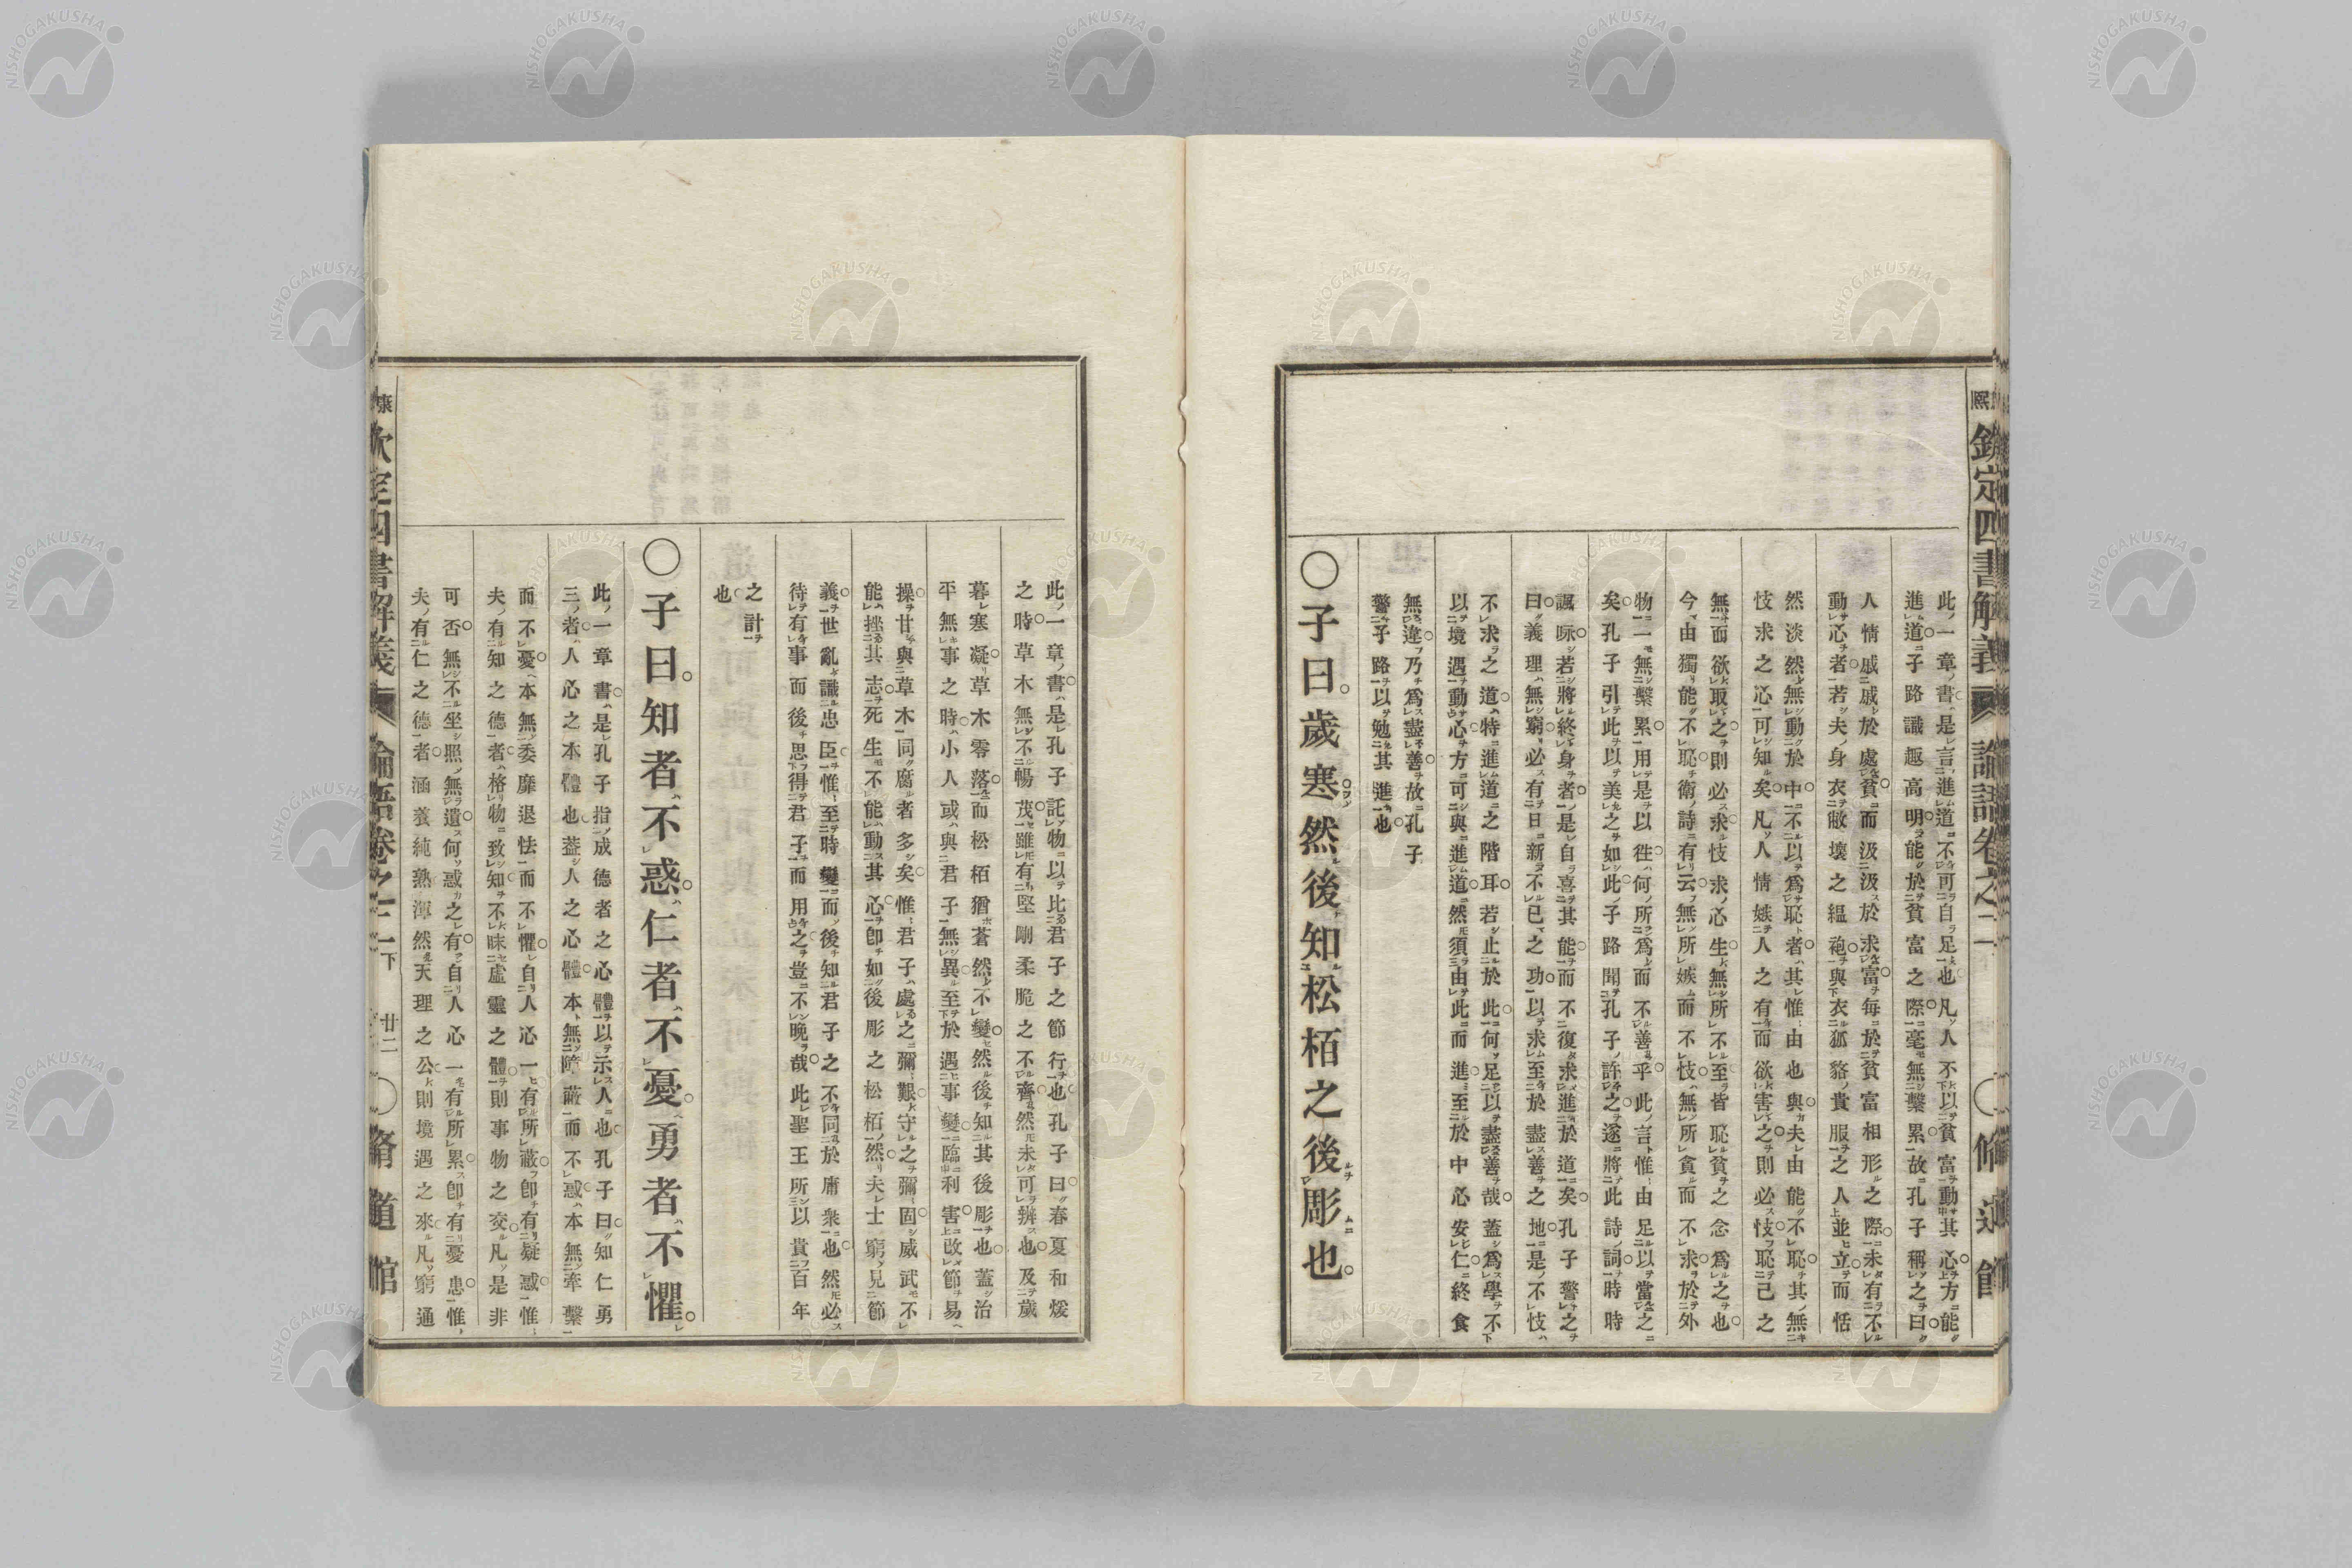 欽定四書解義 論語卷之二
脩道館
此一章書是言進道不可自足也凡人不以貧富動其心方能
進道子路識趣高明能於貧富之際毫無繫累故孔子稱之曰
人情戚戚於處貧而汲汲於求富每於貧富相形之際未有不
動心者若夫身衣敝壞之縕袍與衣狐貉貴服之人並立而恬
然淡然無動於中不以爲恥者其惟由也與夫由能不恥其無
忮求之心可知矣凡人情嫉人之有而欲害之則必忮恥己之
無而欲取之則必求忮求心生無所不至皆恥貧之念爲之也
今由獨能不恥衛詩有云無所嫉而不忮無所貪而不求於外
物一無繫累用是以徃何所爲而不善乎此言惟由足以當之
矣孔子引此以美之如此子路聞孔子許之遂將此詩詞時時
諷咏若將終身者是自喜其能而不復求進於道矣孔子警之
曰義理無窮必有日新不已之功以求至於盡善之地是不忮
不求之道特進道之階耳若止於此何足以盡善哉蓋爲學不
以境遇動心方可與進道然須由此而進至於中心安仁終食
無違乃爲盡善故孔子
警子路以勉其進也
○子曰歲寒然後知松栢之後彫也
此一章書是孔子託物以比君子之節行也孔子曰春夏和煖
之時草木無不暢茂雖有堅剛柔脆之不齊然未可辨也及歲
暮寒凝草木零落而松栢猶蒼然不變然後知其後彫也蓋治
平無事之時小人或與君子無異至於遇事變臨利害改節易
操甘與草木同腐者多矣惟君子處之彌艱守之彌固威武不
能挫其志死生不能動其心卽如後彫之松栢然夫士窮見節
義世亂識忠臣惟至時變而後知君子之不同於庸衆也然必
待有事而後思得君子而用之豈不晚哉此聖王所以貴百年
之計
也
○子曰知者不惑仁者不憂勇者不懼
此一章書是孔子指成德者之心體以示人也孔子曰知仁勇
三者人心之本體也蓋人之心體本無障蔽而不惑本無牽繫
而不憂本無委靡退怯而不懼自人心一有所蔽卽有疑惑惟
夫有知之德者格物致知不昧虛靈之體則事物之交凡是非
可否無不坐照無遺何惑之有自人心一有所累卽有憂患惟
夫有仁之德者涵養純熟渾然天理之公則境遇之來凡窮通
欽定四書解義 論語卷之二下 廿二 ○脩道館
NISHOGAKUSHA